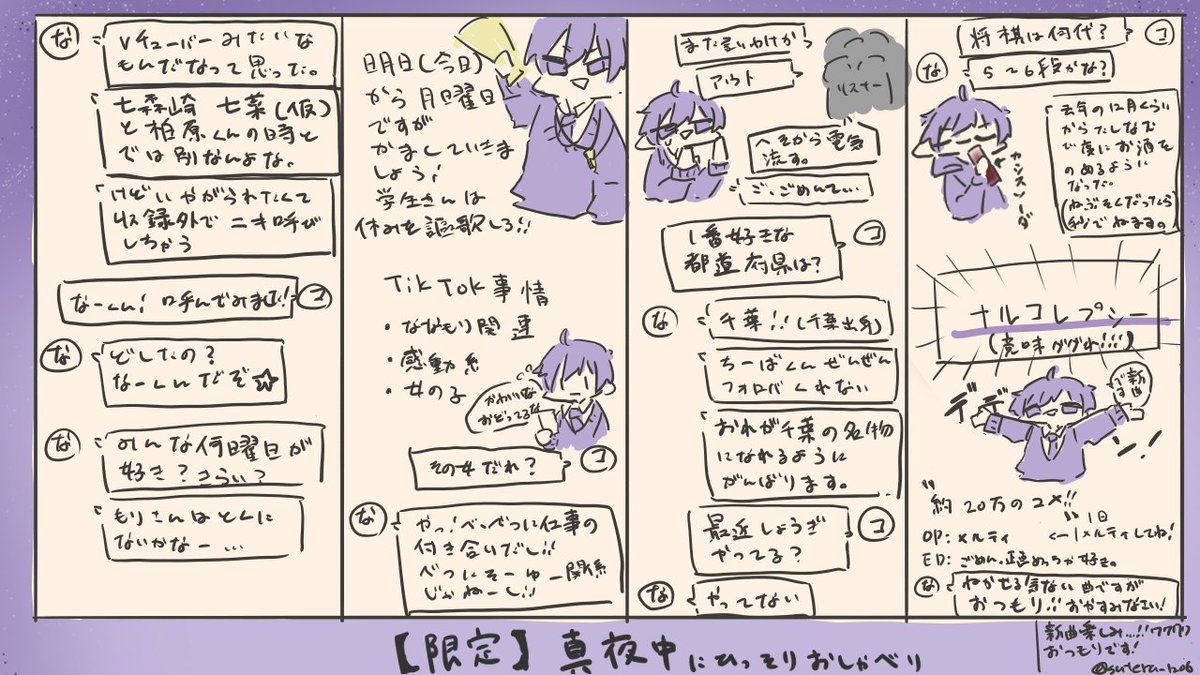 な
Vチューバーみたいな
もんだなって思った。
七森崎 七菜(仮)
と柏原くんの時と
では別なんよな。
けどいやがられたくて
収録外でニキ呼び
しちゃう
なーくん！呼んでみま
コ
な
どしたの？
なーくんだぞ☆
な
みんな何曜日が
好き？きらい？
もりさんはとくに
ないかなー…
明日(今日)
から月曜日
ですが
かましていきま
しょう！
学生さんは
休みを謳歌しろ!!
TikTok事情
・ななもり関連
・感動系
・女の子
かわいいな
おどってるな
その女だれ？
コ
な
やっ！べ、べつに仕事の
付き合いだし!!
べつにそーゆー関係
じゃねーし!!
また言いわけかっ
アウト
リスナー
へそから電気
流す。
ご、ごめんてぃ…
1番好きな
都道府県は？
コ
な
千葉!!(千葉出身)
ちーばくんぜんぜん
フォロバくれない
おれが千葉の名物
になれるように
がんばります。
最近しょうぎ
やってる？
コ
な
やってない
将棋は何代？
コ
な
5〜6段かな？
去年の12月くらい
からたしなむ
で度にお酒を
のめるように
なった。
(ねぶそくだったら
秒でねますの。
カシスソーダ
ナルコレプシー
(意味ググれ!!!)
新曲
です
デデ
ン！
約20万のユメ!!
OP: メルティ
1日
←1メルティしてね！
ED: ごめん、正直めっちゃ好き。
な
ねかせる気ない曲ですが
おつもり!!おやすみなさい！
【限定】真夜中にひっそりおしゃべり
新曲楽しみ…!!ワクワク
おつもりです！